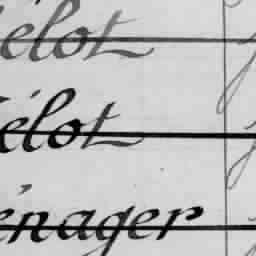 élot
élot
énager